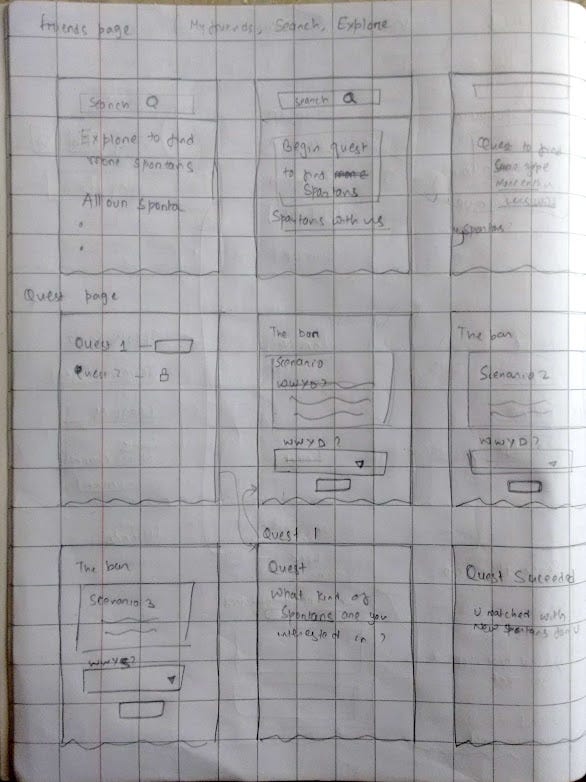 friends page
My friends, Search, Explore
Search
Explore to find
more spontans
All our Sponta
Search
Begin quest
to find more
Spontans
Spontans with us
Quest to find
Same type
My spontans
Quest page
Quest 1
Quest 2
The bar
Scenario
WWYD?
WWYD?
The bar
Scenario 2
WWYD?
Quest 1
The bar
Scenario 3
WWYD?
Quest
What kind of
Spontans are you
interested in ?
Quest Succeeded
U matched with
New spontans